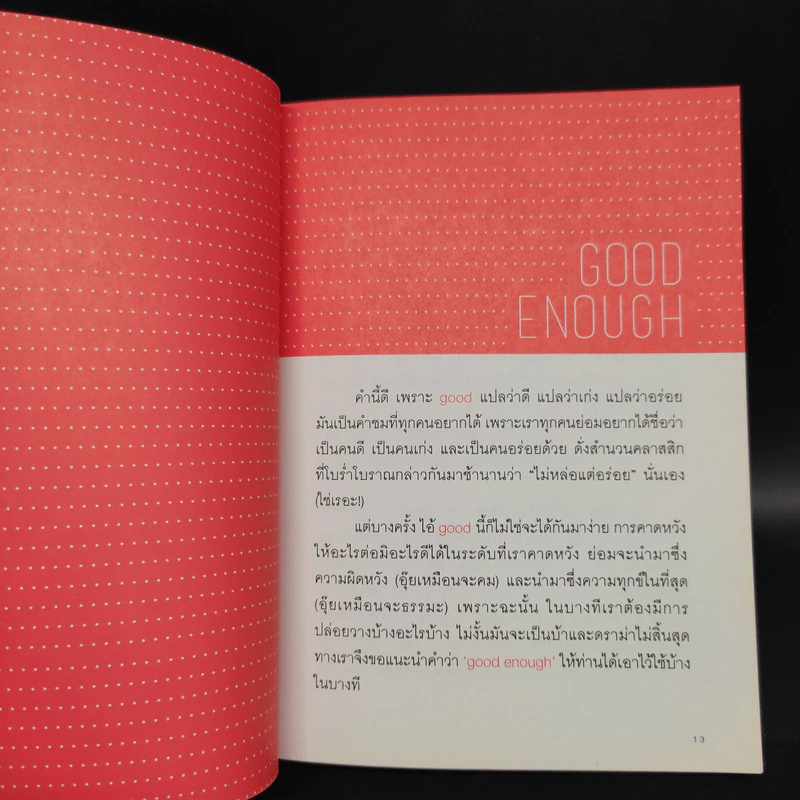 GOOD
ENOUGH
คำนี้ดี เพราะ good แปลว่าดี แปลว่าเก่ง แปลว่าอร่อย
มันเป็นคำชมที่ทุกคนอยากได้ เพราะเราทุกคนย่อมอยากได้ชื่อว่า
เป็นคนดี เป็นคนเก่ง และเป็นคนอร่อยด้วย ดั่งสำนวนคลาสสิก
ที่โบร่ำโบราณกล่าวกันมาช้านานว่า “ไม่หล่อแต่อร่อย” นั่นเอง
(ใช่เรอะ!)
แต่บางครั้ง ไอ้ good นี้ก็ไม่ใช่จะได้กันมาง่าย การคาดหวัง
ให้อะไรต่อมิอะไรดีได้ในระดับที่เราคาดหวัง ย่อมจะนำมาซึ่ง
ความผิดหวัง (อุ๊ยเหมือนจะคม) และนำมาซึ่งความทุกข์ในที่สุด
(อุ๊ยเหมือนจะธรรมะ) เพราะฉะนั้น ในบางทีเราต้องมีการ
ปล่อยวางบ้างอะไรบ้าง ไม่งั้นมันจะเป็นบ้าและดราม่าไม่สิ้นสุด
ทางเราจึงขอแนะนำคำว่า ‘good enough’ ให้ท่านได้เอาไว้ใช้บ้าง
ในบางที
13